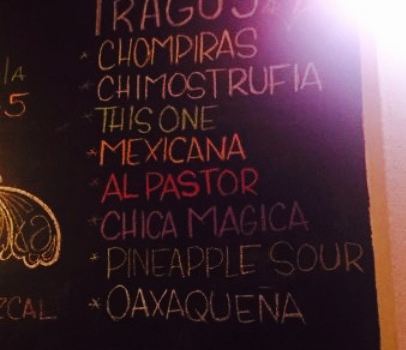 TRAGOS
* CHOMPIRAS
* CHIMOSTRUFIA
* THIS ONE
* MEXICANA
* AL PASTOR
* CHICA MAGICA
* PINEAPPLE SOUR
* OAXAQUEÑA
5